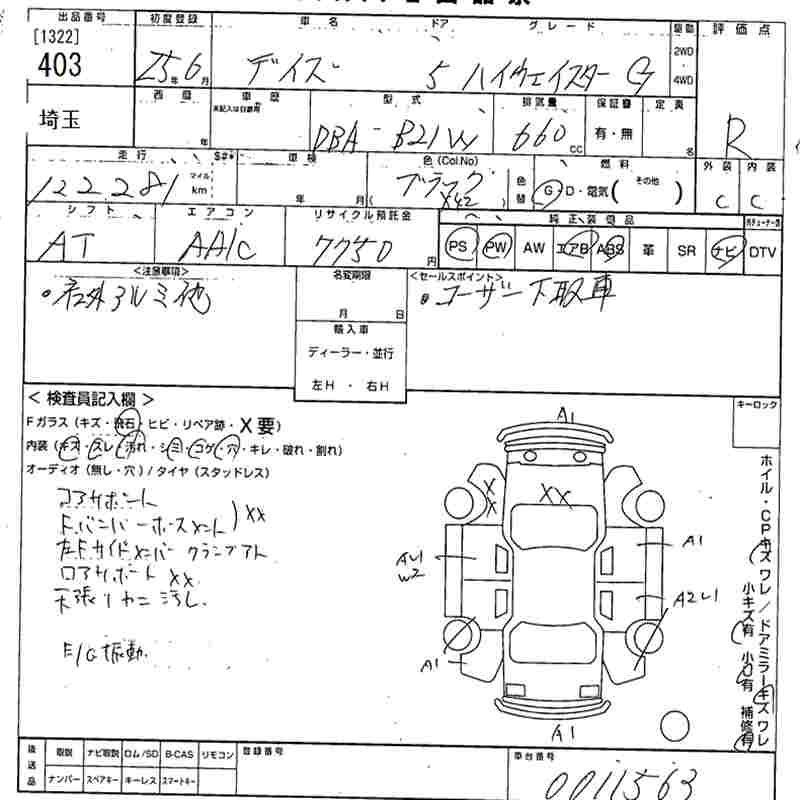 出品番号 初度登録 車名 ドア グレード 駆動 評価点
[1322]
403
25年6月 デイズ 5 ハイウェイスター G
2WD
・
4WD
埼玉
西暦 車歴 型式 排気量 保証書 定員
未記入は自家用
年 DBA-B21W 660cc 有・無 名
R
走行 車検 色(Col.No) 燃料 外装 内装
122281 マイル km 年 月( ブラック X42 ) 色替 G・D・電気( その他 ) C C
シフト エアコン リサイクル預託金 純正装備品
AT AA/C 7750円 PS PW AW エアB ABS 革 SR ナビ DTV
<注意事項> 名変期限 <セールスポイント>
・社外アルミ他 月 日 ・ユーザー下取車
輸入車
ディーラー・並行
左H ・ 右H
<検査員記入欄>
キーロック
Fガラス(キズ・飛石・ヒビ・リペア跡・X要)
内装(キズ・スレ・汚れ・シミ・コゲ・穴・キレ・破れ・割れ)
オーディオ(無し・穴)/タイヤ(スタッドレス)
コアサポート
F.バンパーホースメント)XX
左Fサイドメンバークランプアト
ロアサポート XX
天張リヤニ汚し.
E/G振動.
A1
XX
XX
AU1
W2
A1
A2U1
A1
A1
ホイル・CPキズワレ/ドアミラーキズワレ
小キズ有 小凹有 補修有
後送品 取説 ナビ取説 ロム/SD B-CAS リモコン 登録番号 車台番号
ナンバー スペアキー キーレス スマートキー
0011563